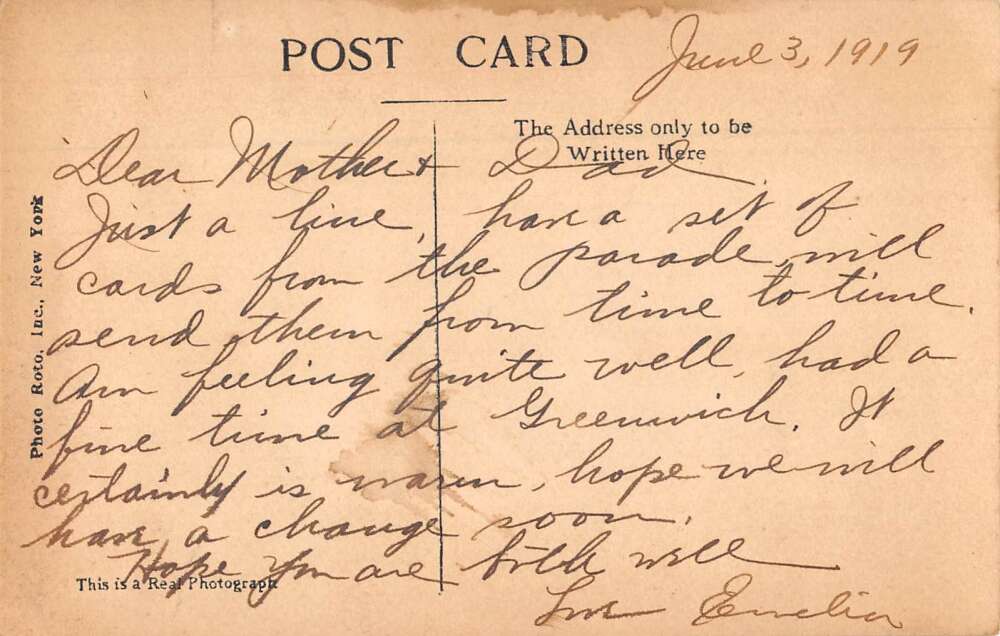 POST CARD
June 3, 1919
The Address only to be
Written Here
Dear Mother & Dad
Just a line, have a set of
cards from the parade, will
send them from time to time.
Am feeling quite well, had a
fine time at Greenwich. It
certainly is warm, hope we will
have a change soon.
Hope you are both well
Love Emelia
Photo Roto, Inc., New York
This is a Real Photograph